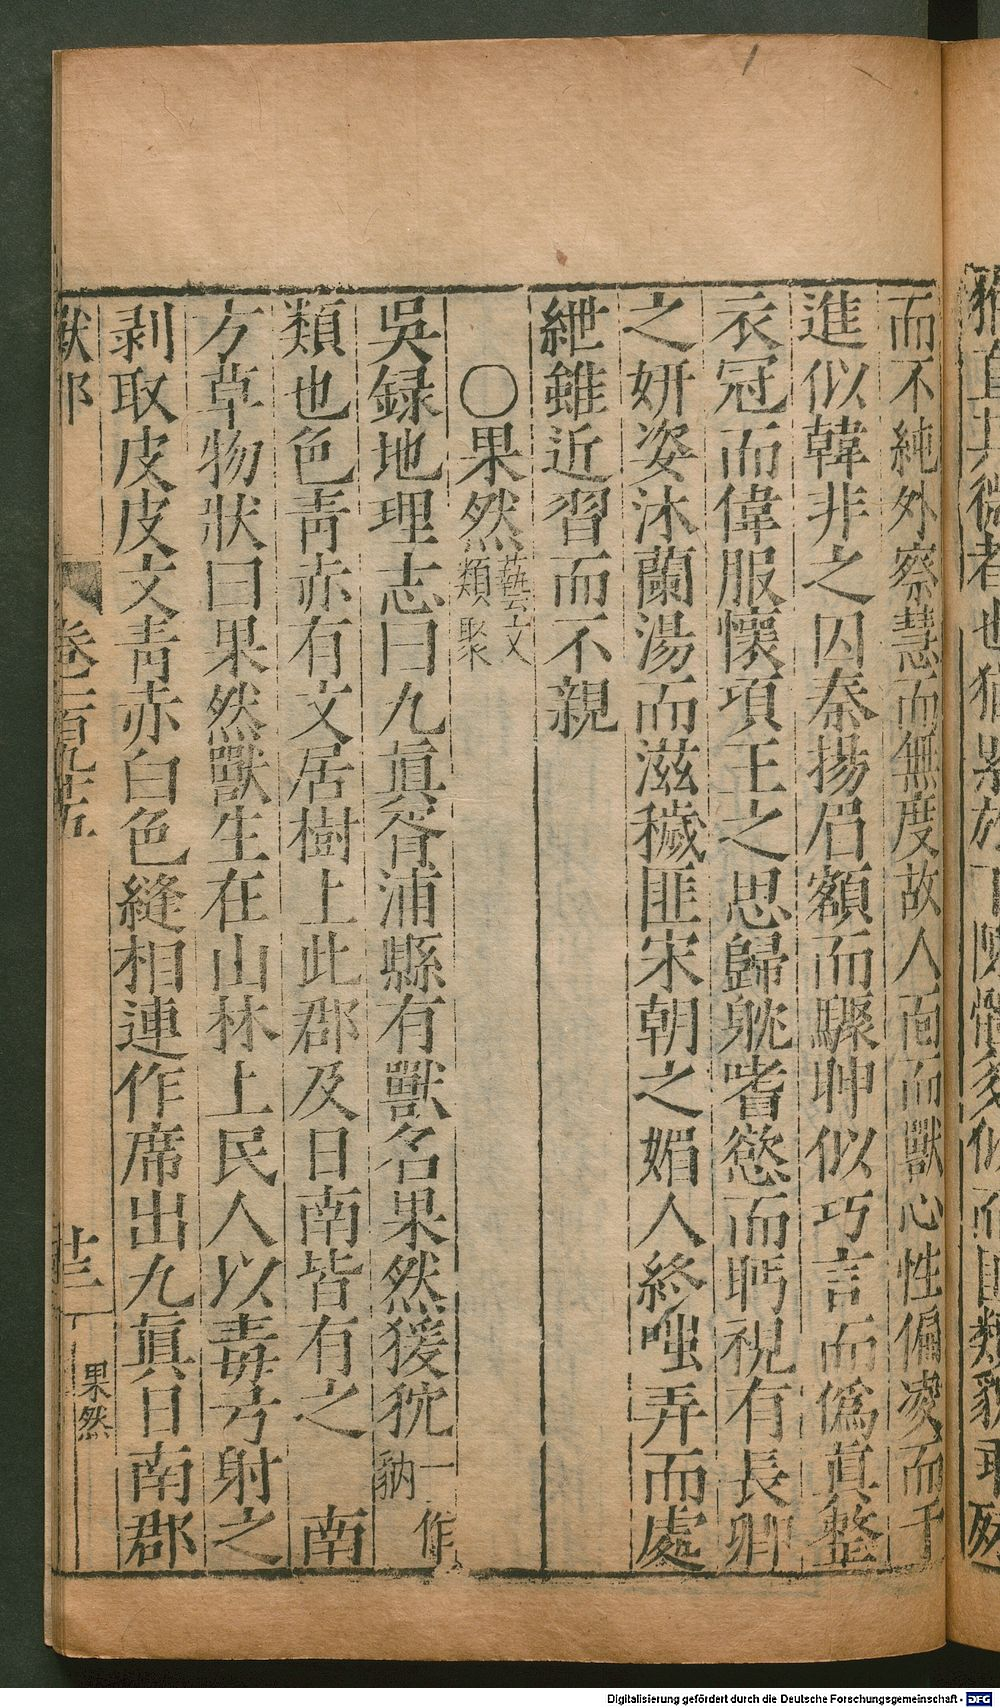 而不純外察慧而無度故人面而獸心性偏凌而干
進似韓非之囚秦揚眉額而驟眒似巧言而偽眞整
衣冠而偉服懷項王之思歸躭嗜慾而眄視有長卿
之妍姿沐蘭湯而滋穢匪宋朝之媚人終嗤弄而處
紲雖近習而不親
〇果然藝文類聚
吳録地理志曰九眞胥浦縣有獸名果然猨狖一作貁
類也色靑赤有文居樹上此郡及日南皆有之 南
方草物狀曰果然獸生在山林上民人以毒弓射之
剥取皮皮文靑赤白色縫相連作席出九眞日南郡
獸部 卷一百九十五 廿三 果然
Digitalisierung gefördert durch die Deutsche Forschungsgemeinschaft - DFG